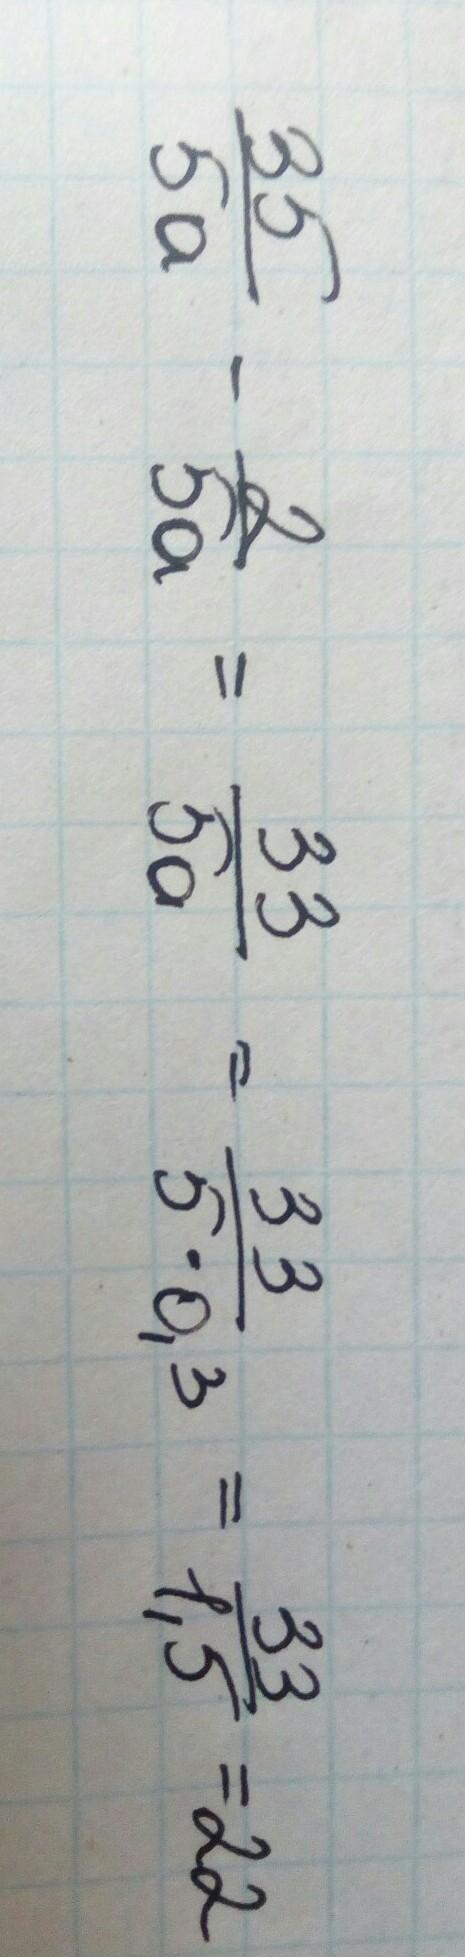 35/5a - 2/5a = 33/5a = 33/5·0,3 = 33/1,5 = 22